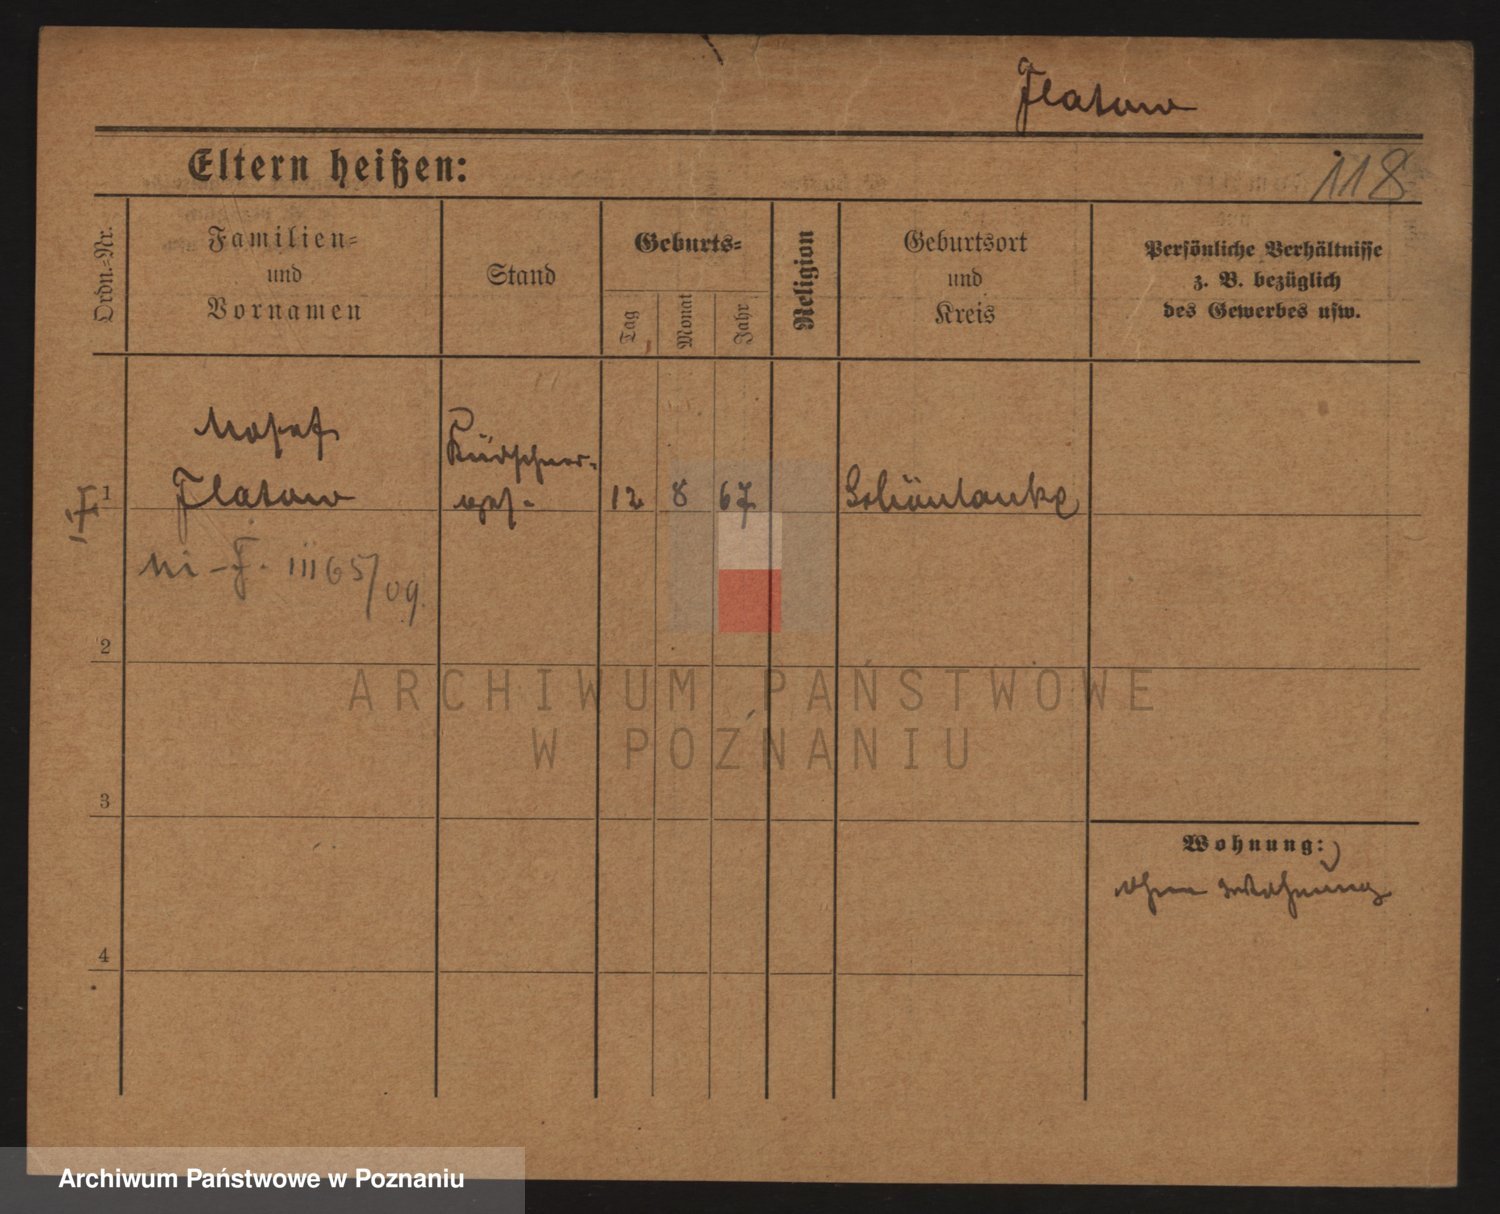 Flatow
Eltern heißen:
118
Ordn.-Nr.
Familien-
und
Vornamen
Stand
Geburts-
Tag
Monat
Jahr
Religion
Geburtsort
und
Kreis
Persönliche Verhältnisse
z. B. bezüglich
des Gewerbes usw.
1
Flatow
Kürschner-
ges.
12
8
67
Schönlanke
F. III 65/09.
2
3
4
Wohnung:
ohne Wohnung
ARCHIWUM PAŃSTWOWE
W POZNANIU
Archiwum Państwowe w Poznaniu